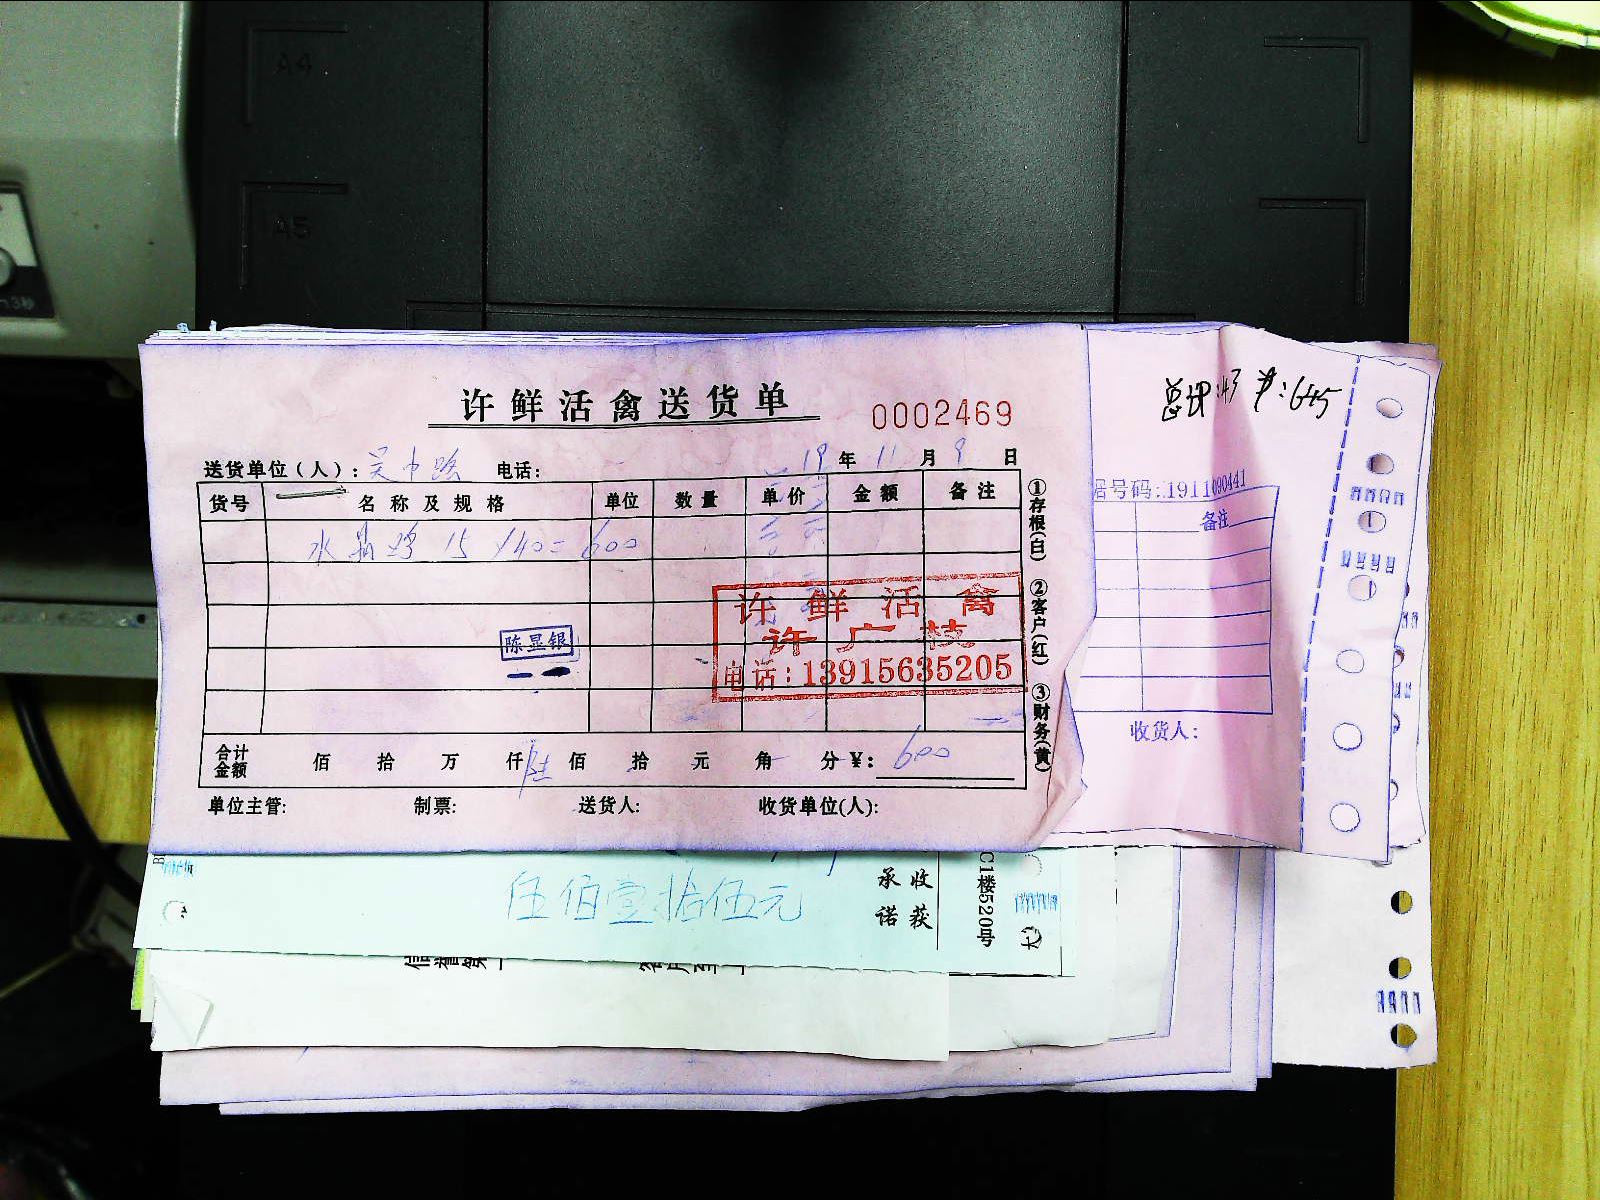 A4
A5
许鲜活禽送货单
0002469
送货单位（人）：吴中路 电话： 19 年 11 月 9 日
货号 名称及规格 单位 数量 单价 金额 备注
水晶鸡 15 ×40=600
陈显银
许鲜活禽
许广枝
电话：13915635205
合计金额 佰 拾 万 仟 陆 佰 拾 元 角 分 ¥： 600
单位主管: 制票: 送货人: 收货单位(人):
①存根(白) ②客户(红) ③财务(黄)
据号码:1911090441
备注
收货人:
伍佰壹拾伍元
承诺 收获
C1楼520号